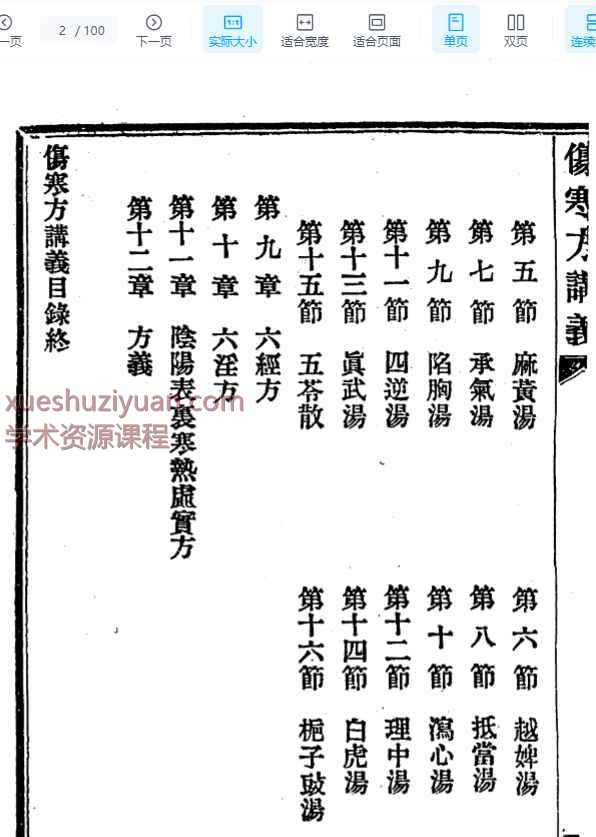 一页
2 / 100
下一页
实际大小
适合宽度
适合页面
单页
双页
连续
傷寒方講義
第五節 麻黃湯 第六節 越婢湯
第七節 承氣湯 第八節 抵當湯
第九節 陷胸湯 第十節 瀉心湯
第十一節 四逆湯 第十二節 理中湯
第十三節 眞武湯 第十四節 白虎湯
第十五節 五苓散 第十六節 梔子豉湯
第九章 六經方
第十章 六淫方
第十一章 陰陽表裏寒熱虛實方
第十二章 方義
傷寒方講義目錄終
xueshuziyuan.com
学术资源课程